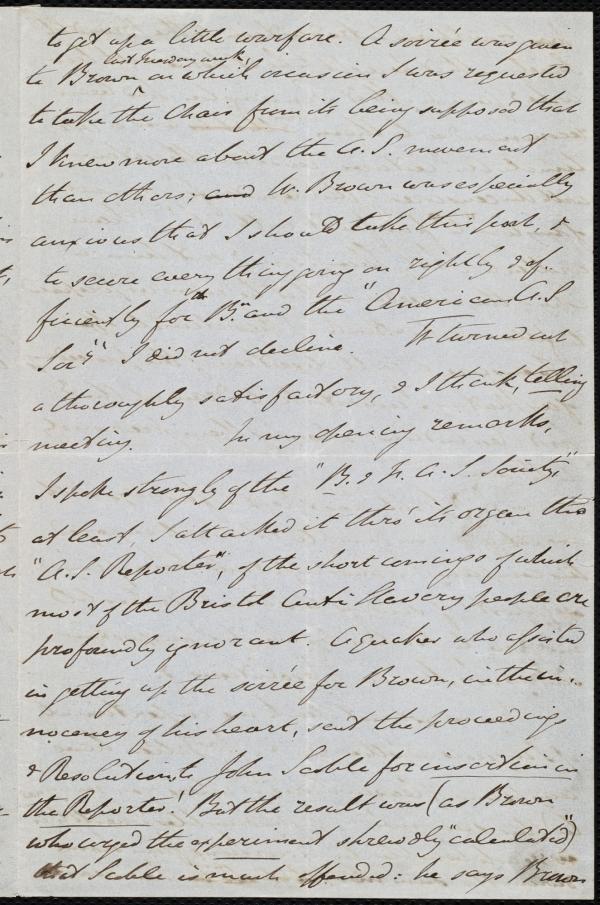 to get up a little warfare. A soirée was given
last Tuesday week,
to Brown on which occasion I was requested
to take the Chair from its being supposed that
I knew more about the A.S. movement
than others; and W. Brown was especially
anxious that I should take this post, &
to secure every thing going on rightly & ef-
ficiently for "B." and the "American A.S
Socy" I did not decline. It turned out
a thoroughly satisfactory, & I think, telling
meeting. In my opening remarks,
I spoke strongly of the "B. & F. A. S. Society,"
at least, I attacked it thro' its organ the
"A.S. Reporter", of the short comings of which
most of the Bristol Anti Slavery people are
profoundly ignorant. A quaker who assisted
in getting up the soirée for Brown, in the in-
nocency of his heart, sent the proceedings
& Resolutions, to John Scoble for insertion in
the Reporter! But the result was (as Brown
who urged the experiment shrewdly "calculated")
that Scoble is much offended: he says Brown